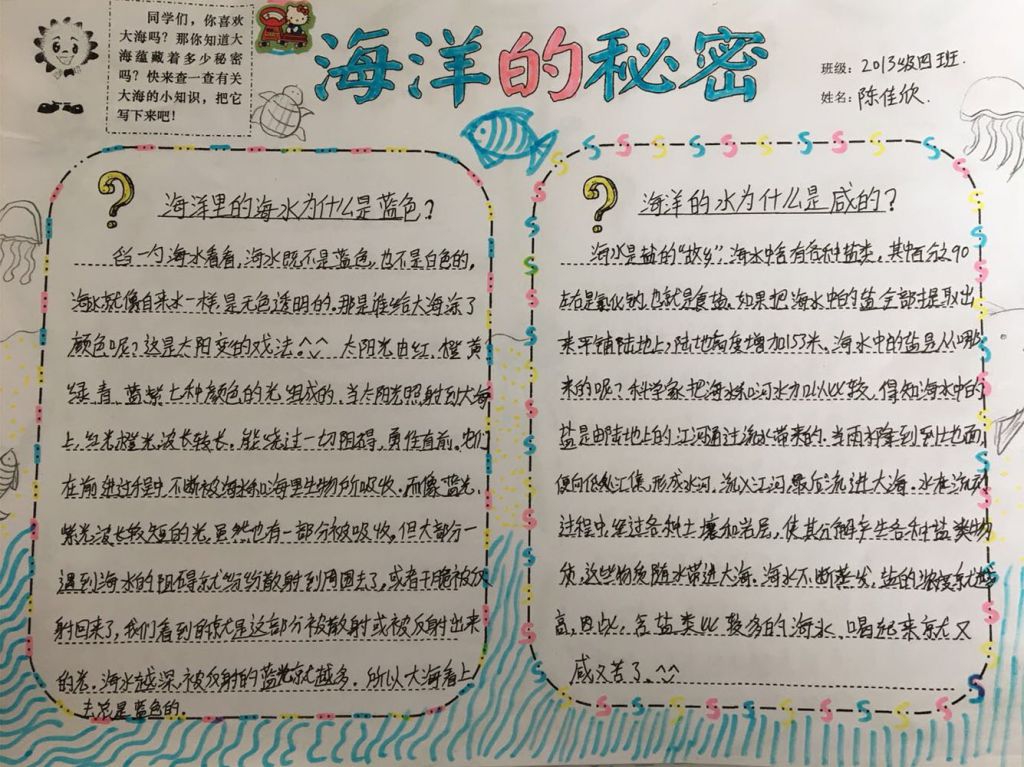 同学们，你喜欢
大海吗？那你知道大
海蕴藏着多少秘密
吗？快来查一查有关
大海的小知识，把它
写下来吧！
海洋的秘密
班级：2013级四班.
姓名：陈佳欣.
海洋里的海水为什么是蓝色？
舀一勺海水看看,海水既不是蓝色,也不是白色的,
海水就像自来水一样,是无色透明的.那是谁给大海涂了
颜色呢？这是太阳变的戏法.^^ 太阳光由红.橙.黄
绿.青.蓝.紫七种颜色的光组成的.当太阳光照射到大海
上,红光橙光,波长较长.能绕过一切阻碍,勇往直前.它们
在前进过程中,不断被海水和海里生物所吸收.而像蓝光,
紫光波长较短的光,虽然也有一部分被吸收,但大部分一
遇到海水的阻碍就纷纷散射到周围去了,或者干脆被反
射回来了,我们看到的就是这部分被散射或被反射出来
的光.海水越深,被反射的蓝光就越多.所以大海看上
去总是蓝色的.
海洋的水为什么是咸的？
海水是盐的“故乡”,海水中含有各种盐类,其中百分之90
左右是氯化钠,也就是食盐.如果把海水中的盐全部提取出
来平铺陆地上,陆地高度增加153米.海水中的盐是从哪
来的呢？科学家把海水和河水加以比较,得知海水中的
盐是由陆地上的江河通过流水带来的.当雨水降到到地面,
便向低处汇集,形成水河.流入江河,最后流进大海.水在流动
过程中,经过各种土壤和岩层,使其分解产生各种盐类物
质,这些物质随水带进大海.海水不断蒸发,盐的浓度就越
高,因此,含盐类比较多的海水.喝起来就又
咸又苦了.^^